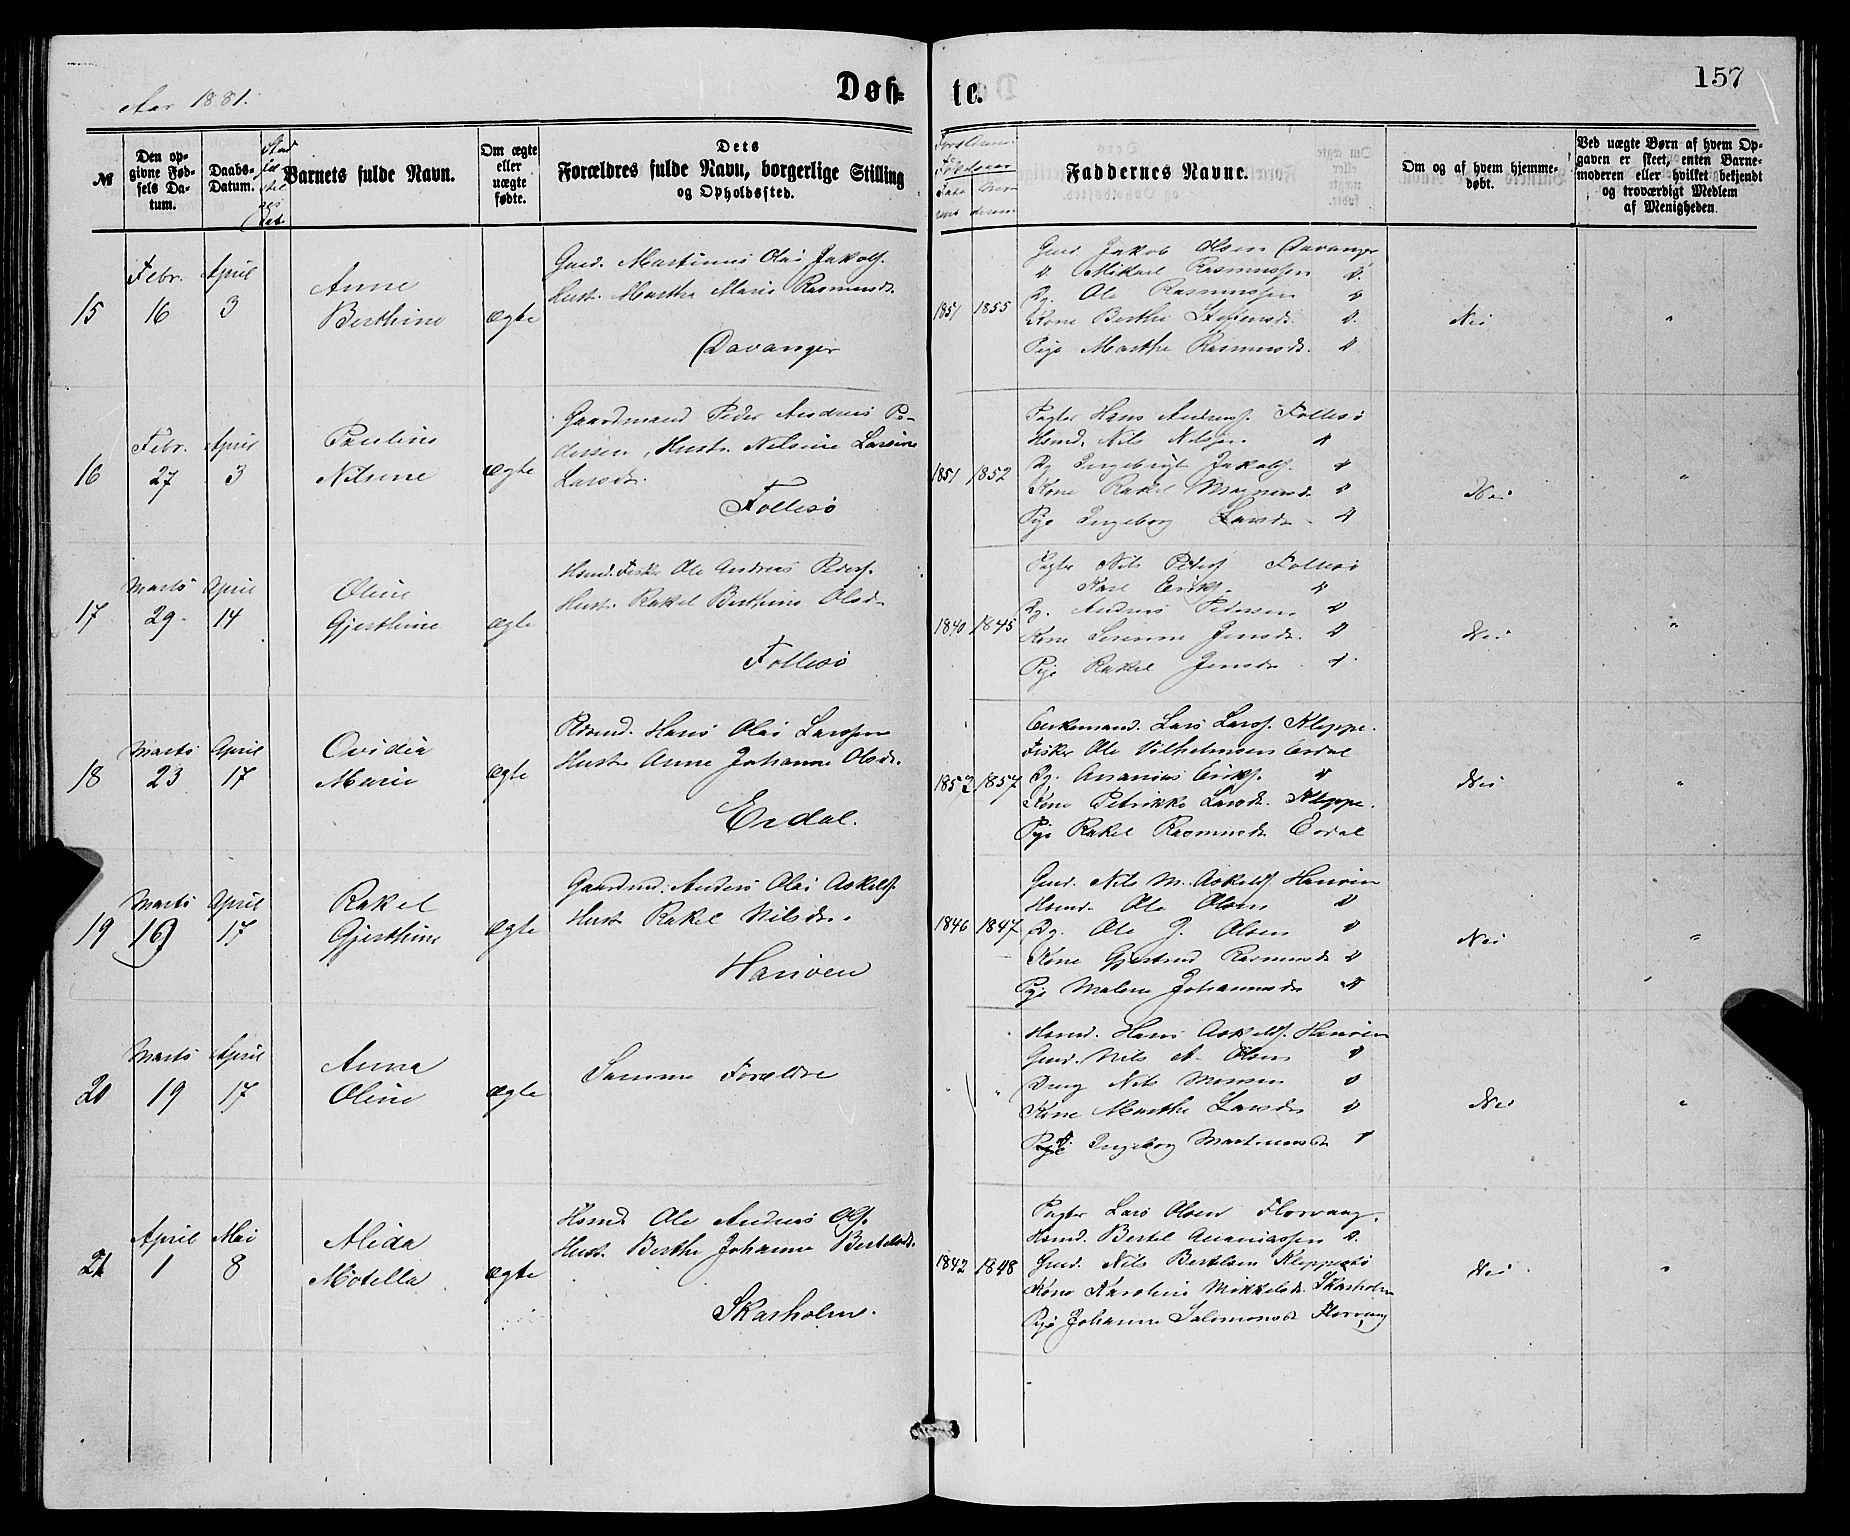 Aar 1881.
Døb-
te.
157
№
Den op-
givne Fød-
sels Da-
tum.
Daabs-
Datum.
Barnets fulde Navn.
Om ægte
eller
uægte
fødte.
Dets
Forældres fulde Navn, borgerlige Stilling
og Opholdssted.
Faddernes Navne.
Om og af hvem hjemme-
døbt.
Ved uægte Børn af hvem Op-
gaven er skeet, enten Barne-
moderen eller hvilket bekjendt
og troværdigt Medlem
af Menigheden.
15
Febr.
16
April
3
Anne
Berthine
ægte
Gmd. Martinus Olai Jakobs.
Hust. Martha Marie Rasmusd.
Davanger
1851 1855
Gmd Jakob Olsen Davanger
" Mikael Rasmussen "
Dg. Ole Rasmussen "
Kone Berthe Steffensd. "
Pige Marthe Rasmusd. "
Nei
"
16
Febr.
27
April
3
Pauline
Nilsine
ægte
Gaardmand Peder Andreas Pe-
dersen, Hustr. Nilsine Larsine
Larsd.
Follesø
1851 1852
Pagter Hans Anders. Follesø
Hsmd. Nils Nilsen "
Dg Ingebrigt Jakobs. "
Kone Rakel Magnusd. "
Pige Ingeborg Larsd. "
Nei
"
17
Marts
29
April
14
Oline
Gjerthine
ægte
Hsmd. Fisker Ole Andreas Peders.
Hust. Rakel Berthine Olsd.
Follesø
1840 1845
Pagter Nils Peders Follesø
Karl Eriks. "
Dg. Andreas Pedersen "
Kone Serine Jensd. "
Pige Rakel Jensd. "
Nei
"
18
Marts
23
April
17
Ovidia
Marie
ægte
Hans Olai Larssen
Hust. Anne Johanne Olsd.
Erdal.
1852 1857
Lars Larss. Kleppe.
Fisker Ole Vilhelmsen Erdal
Dg. Ananias Eriks. "
Kone Petrikke Larsd. Kleppe.
Pige Rakel Rasmusd. Erdal
Nei
"
19
Marts
19
April
17
Rakel
Gjerthine
ægte
Gaardmd. Anders Olai Askelds.
Hust. Rakel Nilsd.
Hanøen
1846 1847
Gmd. Nils M. Askelds. Hanøen
Hsmd. Ole Olsen "
Dg. Ole J. Olsen "
Kone Gjertrud Rasmusd. "
Pige Malene Johannesd. "
Nei
"
20
Marts
19
April
17
Anna
Oline
ægte
Samme Forældre
"
Hsmd. Hans Askelds. Hanøen
Gmd. Nils A. Olsen "
Dreng Nils Monsen "
Kone Marthe Larsd. "
Pige Ingeborg Martinusd. "
Nei
"
21
April
1
Mai
8
Alida
Motella
ægte
Hsmd. Ole Andreas Ols.
Hust. Berthe Johanne Bertelsd.
Skarholm.
1842 1848
Pagter Lars Olsen Florvaag.
Hsmd. Bertel Ananiassen ".
Gmd. Nils Bertelsen Kleppestø
Kone Karoline Mikkelsd. Skarholm
Pige Johanne Salomonsd. Florvaag
Nei
"